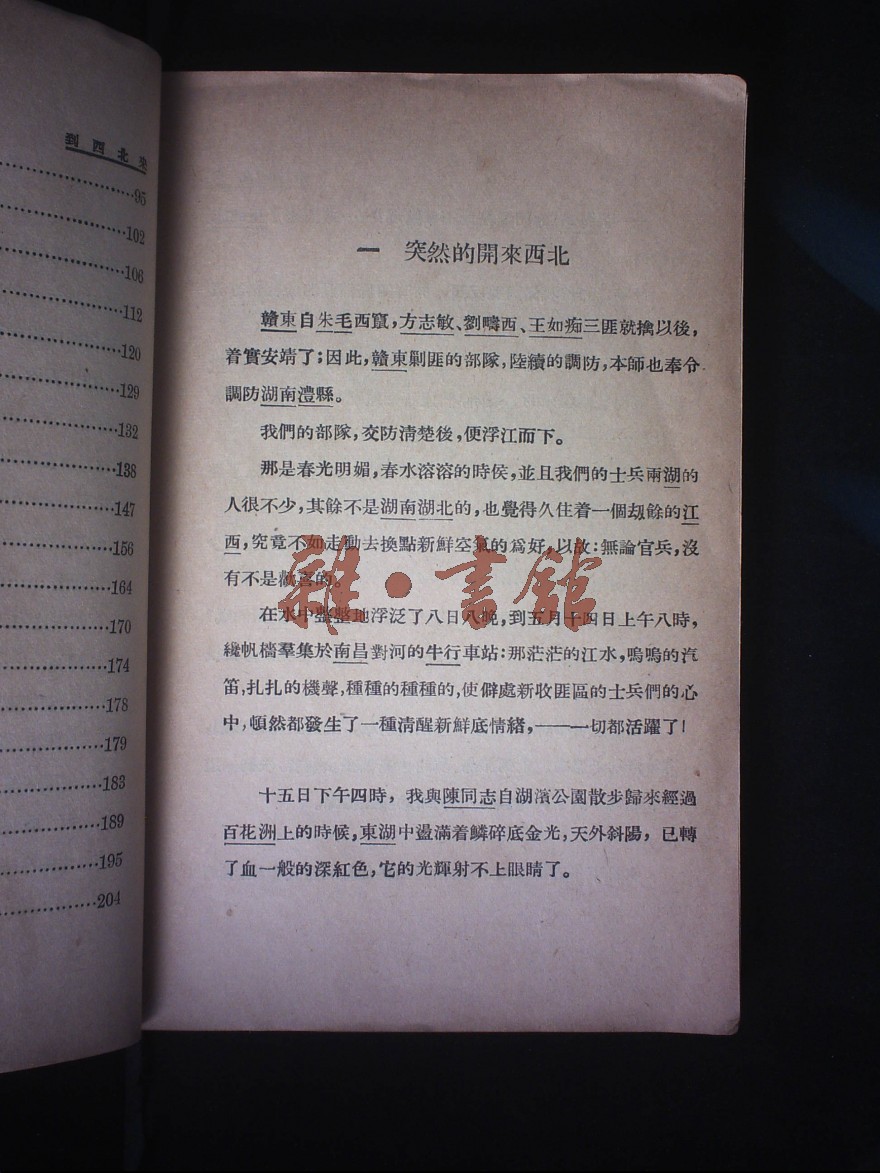 到西北來
95
102
106
112
120
129
132
138
147
156
164
170
174
178
179
183
189
195
204
一　突然的開來西北
贛東自朱毛西竄，方志敏、劉疇西、王如痴三匪就擒以後，
着實安靖了；因此，贛東剿匪的部隊，陸續的調防，本師也奉令
調防湖南澧縣。
我們的部隊，交防清楚後，便浮江而下。
那是春光明媚，春水溶溶的時侯，並且我們的士兵兩湖的
人很不少，其餘不是湖南湖北的，也覺得久住着一個刼餘的江
西，究竟不如走動去換點新鮮空氣的爲好，以故：無論官兵，沒
有不是歡喜的。
在水中整整地浮泛了八日八晚，到五月十四日上午八時，
纔帆檣羣集於南昌對河的牛行車站：那茫茫的江水，嗚嗚的汽
笛，扎扎的機聲，種種的種種的，使僻處新收匪區的士兵們的心
中，頓然都發生了一種淸醒新鮮底情緒，——一切都活躍了！
十五日下午四時，我與陳同志自湖濱公園散步歸來經過
百花洲上的時候，東湖中盪滿着鱗碎底金光，天外斜陽，已轉
了血一般的深紅色，它的光輝射不上眼睛了。
雜·書館